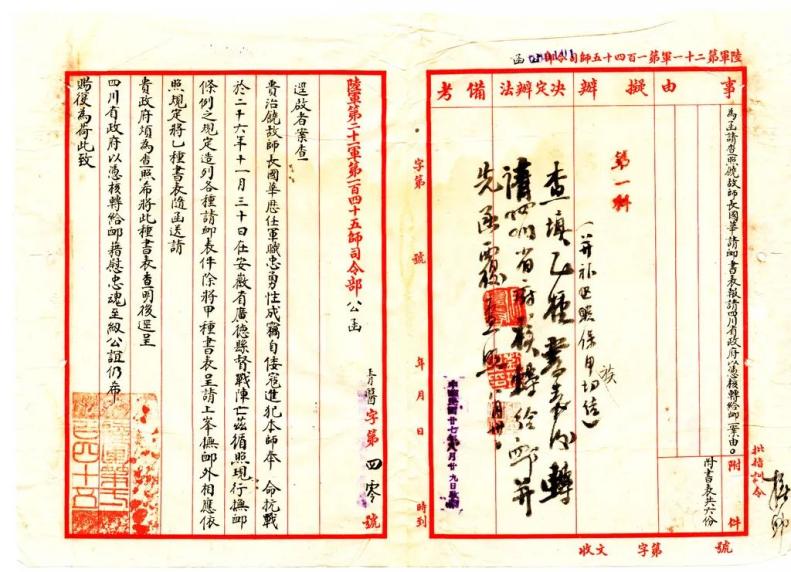 陸軍第二十一軍第一百四十五師司令部 函
收文 字第 號
批指訓令
撫卹
事由
為函請查照饒故師長國華請卹書表報請四川省政府以憑核轉給卹一案由。
附件
附書表共六份
擬辦
第一科
決定辦法
(并补具照保甲切結)
查填乙種書表內轉
請四川省府核轉給卹并
先函覆查照
八月卅
備考
中華民國廿七年八月廿九日收到
字第 號
年 月 日 時到
陸軍第二十一軍第一百四十五師司令部公函
青醫字第四零號
逕啟者案查
貴治饒故師長國華歷任軍職忠勇性成竊自倭寇進犯本師奉 命抗戰
於二十六年十一月三十日在安徽省廣德縣督戰陣亡茲循照現行撫卹
條例之規定造列各種請卹表件除將甲種書表呈請上峯撫卹外相應依
照規定將乙種書表隨函送請
貴政府煩為查照希將此種書表查明後逕呈
四川省政府以憑核轉給卹藉慰忠魂至級公誼仍希
賜復為荷此致